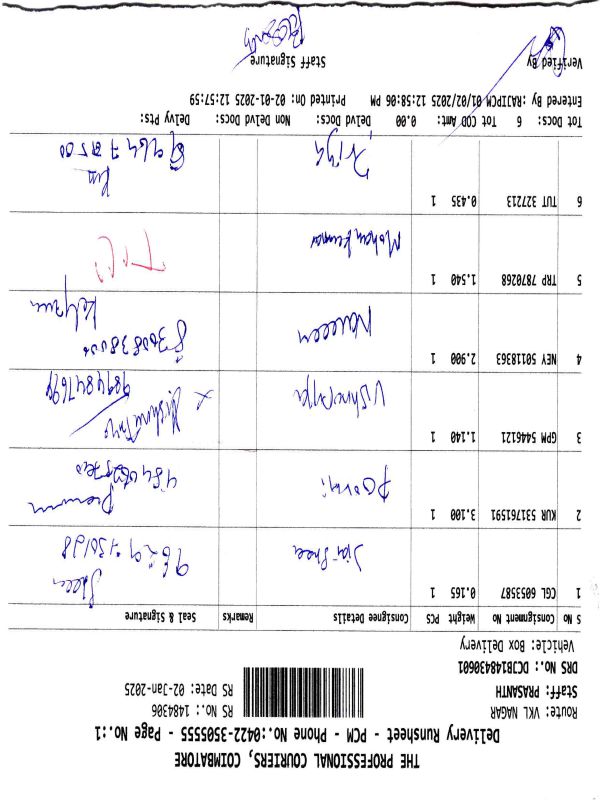 THE PROFESSIONAL COURIERS, COIMBATORE
Delivery Runsheet - PCM - Phone No.:0422-3505555 - Page No.:1
Route: VKL NAGAR RS No.: 1484306
Staff: PRASANTH RS Date: 02-Jan-2025
DRS No.: DCJB148430601
Vehicle: Box Delivery
S No Consignment No Weight PCS Consignee Details Remarks Seal & Signature
1 CGL 6053587 0.165 1
2 KUR 531761591 3.100 1
3 GPM 5446121 1.140 1 9894847694
4 NEY 50118363 2.900 1 Naveen
5 TRP 7870268 1.540 1 Mohan kumar
6 TUT 327213 0.435 1 Priya
Tot Docs: 6 Tot COD Amt: 0.00 Delvd Docs: Non Delvd Docs: Delvy Pts:
Entered By: RAJIPCM 01/02/2025 12:58:06 PM Printed On: 02-01-2025 12:57:59
Verified By Staff Signature